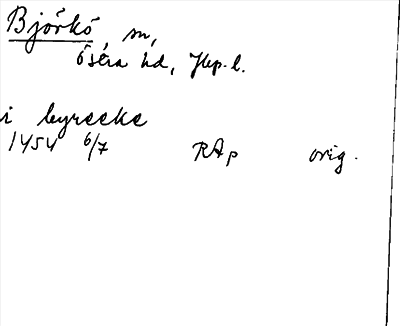 Björkö, sn,
Össra hd, Jkp. l.
i byrecke
1454 6/7 RAp orig.